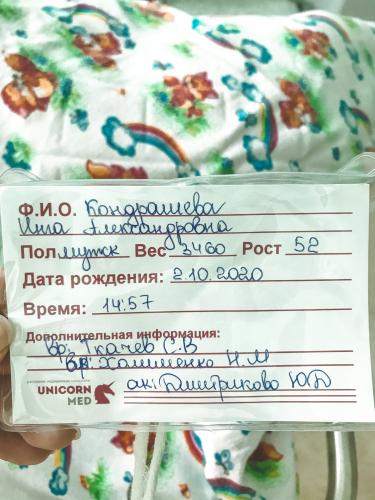 Ф.И.О. Кондрашева
Инга Александровна
Пол мужск Вес 3460 Рост 52
Дата рождения: 2.10.2020
Время: 14:57
Дополнительная информация:
вр: Ткачев С.В
Вр: Халименко Н.М
UNICORN MED
ак: Дмитриково Ю.В